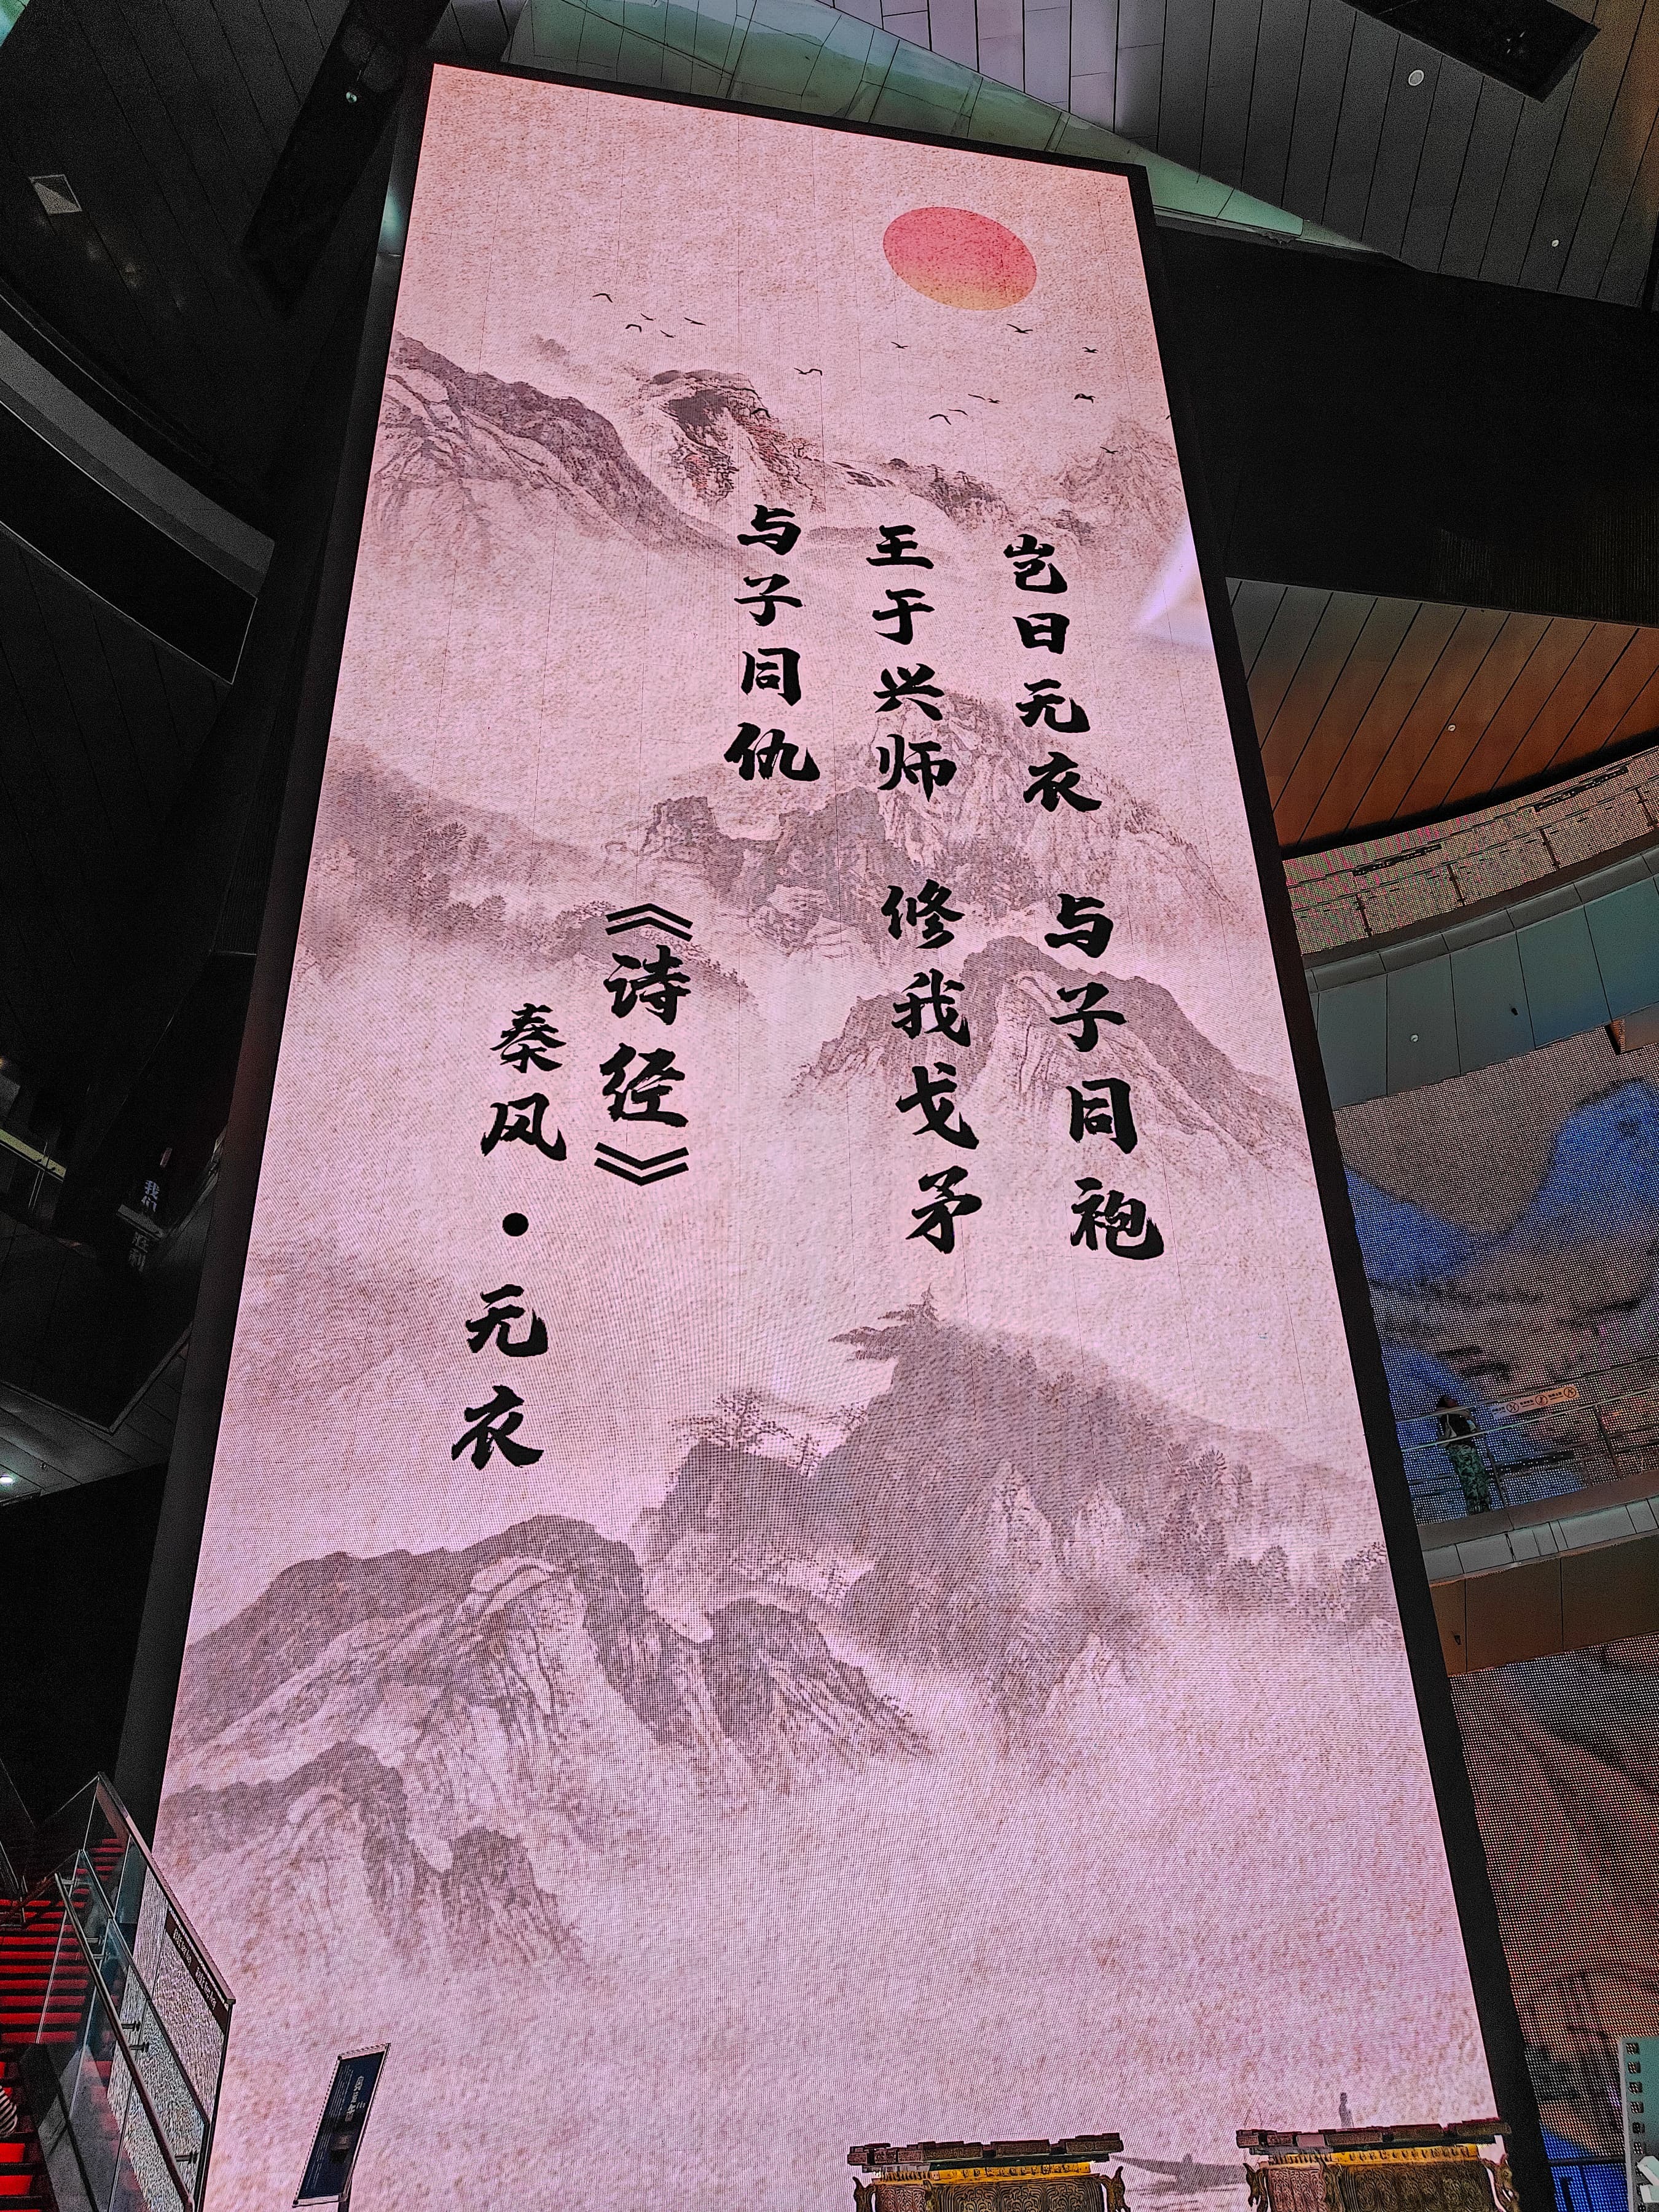 岂曰无衣 与子同袍
王于兴师 修我戈矛
与子同仇
《诗经》
秦风·无衣
我们